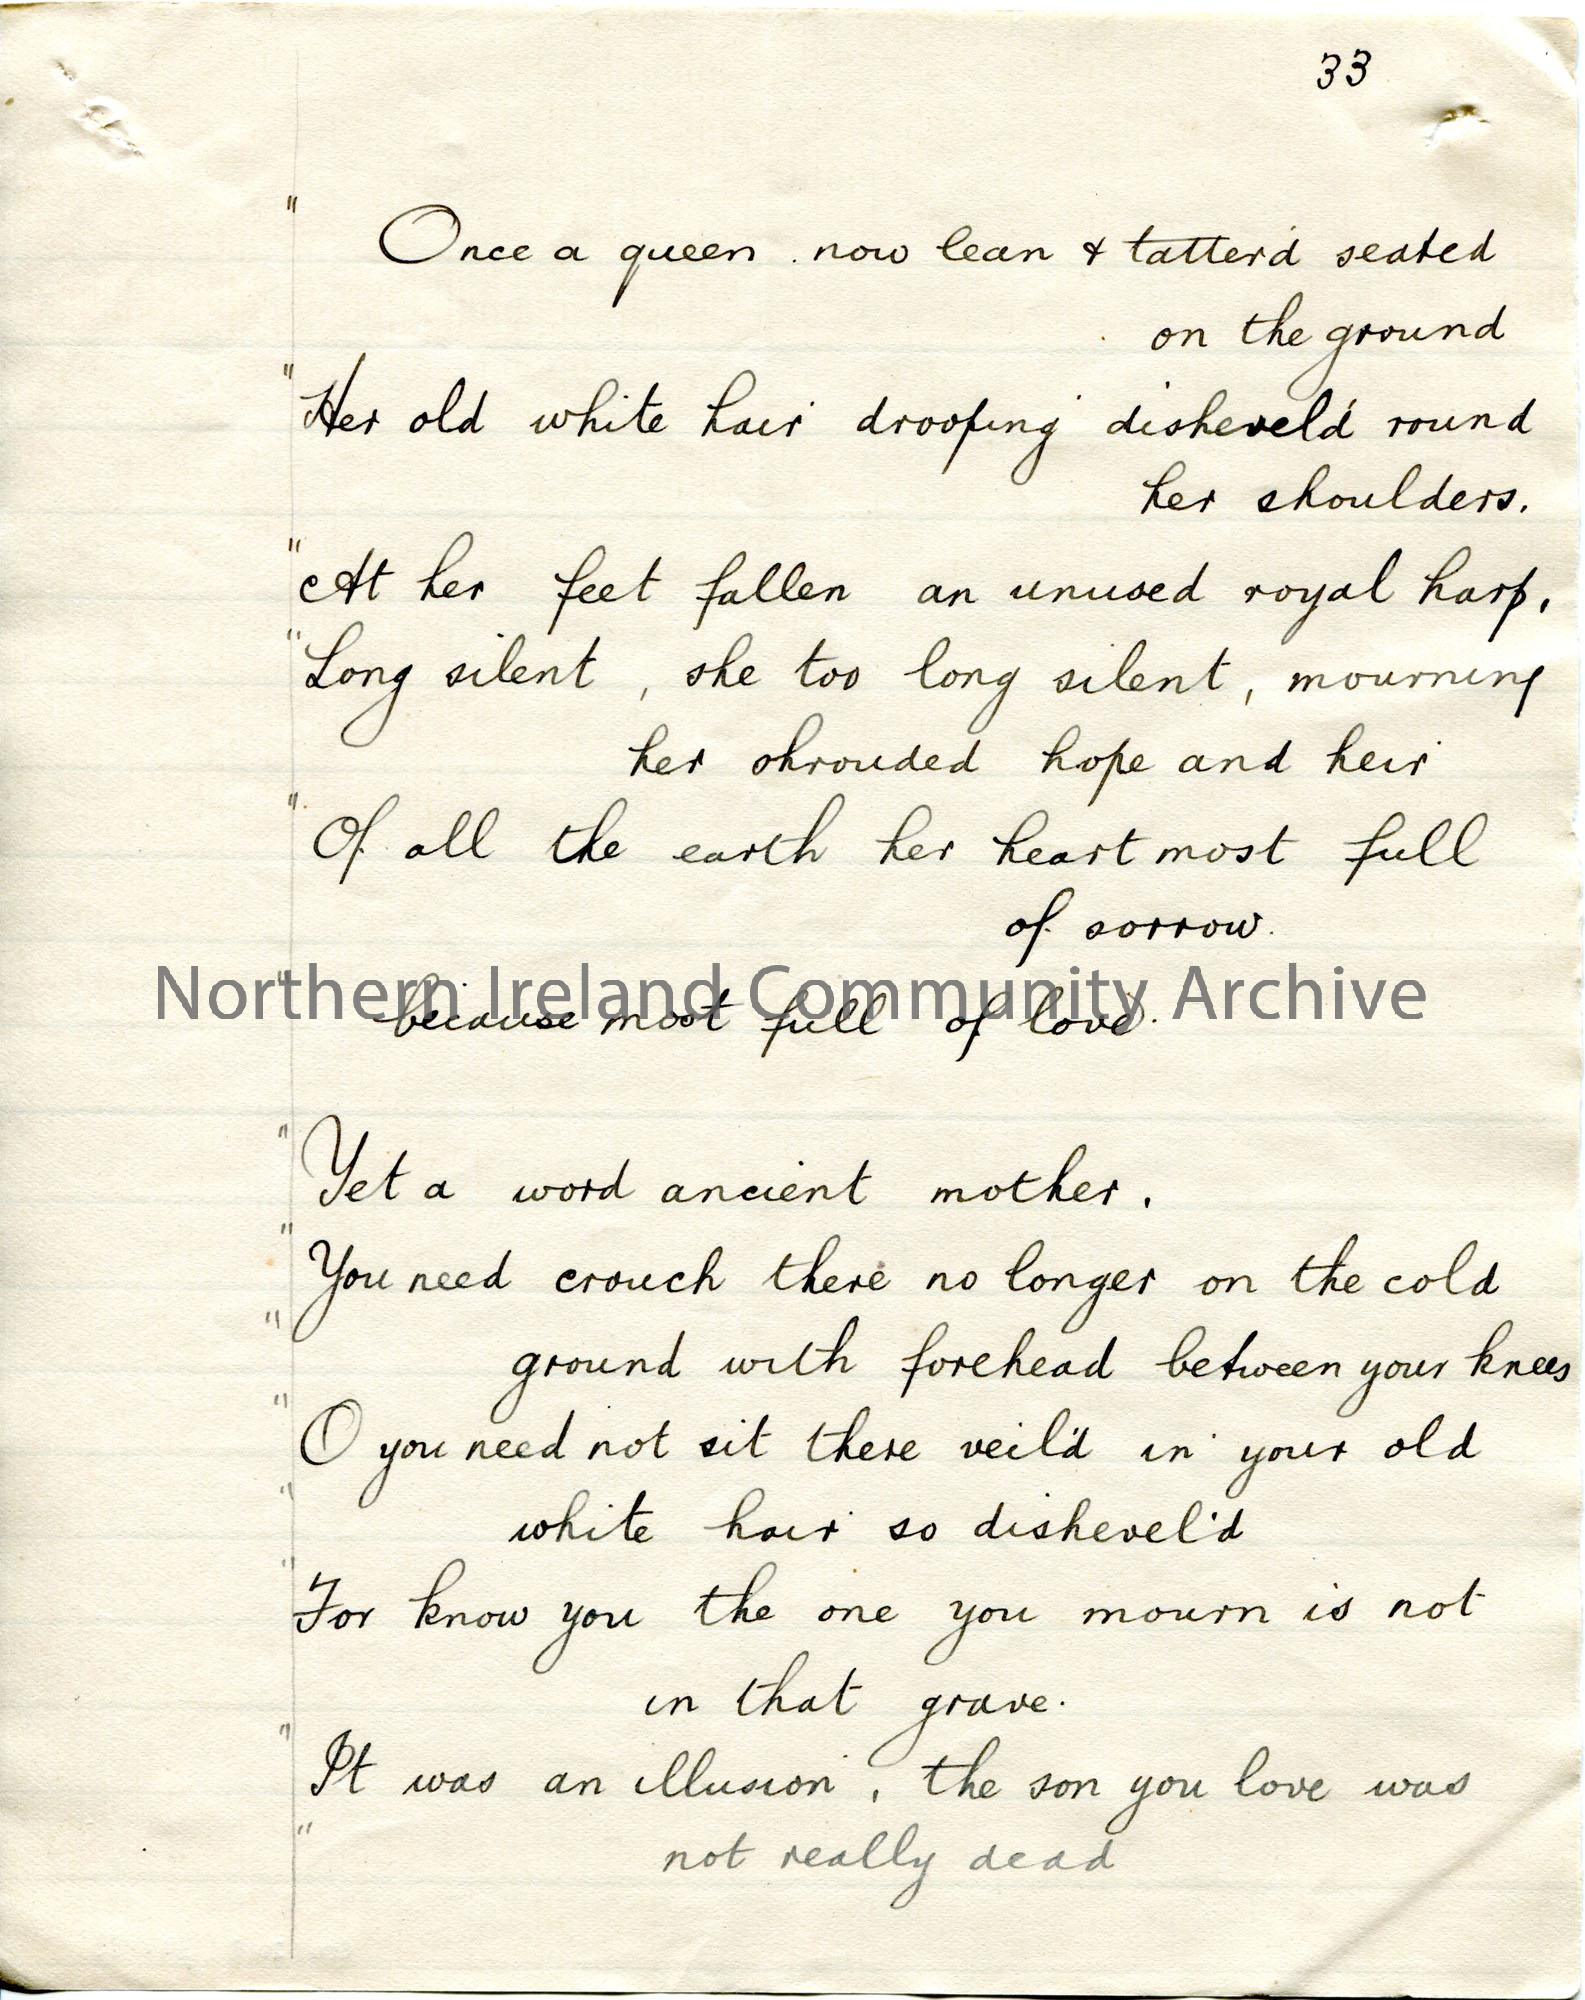 33
" Once a queen . now lean & tatter'd seated
on the ground
" Her old white hair drooping dishevel'd round
her shoulders.
" At her feet fallen an unused royal harp,
" Long silent , she too long silent, mourning
her shrouded hope and heir
" Of all the earth her heart most full
of sorrow.
Northern Ireland Community Archive
" because most full of love.
" Yet a word ancient mother,
" You need crouch there no longer on the cold
" ground with forehead between your knees
" O you need not sit there veil'd in your old
" white hair so dishevel'd
" For know you the one you mourn is not
in that grave.
" It was an illusion, the son you love was
" not really dead